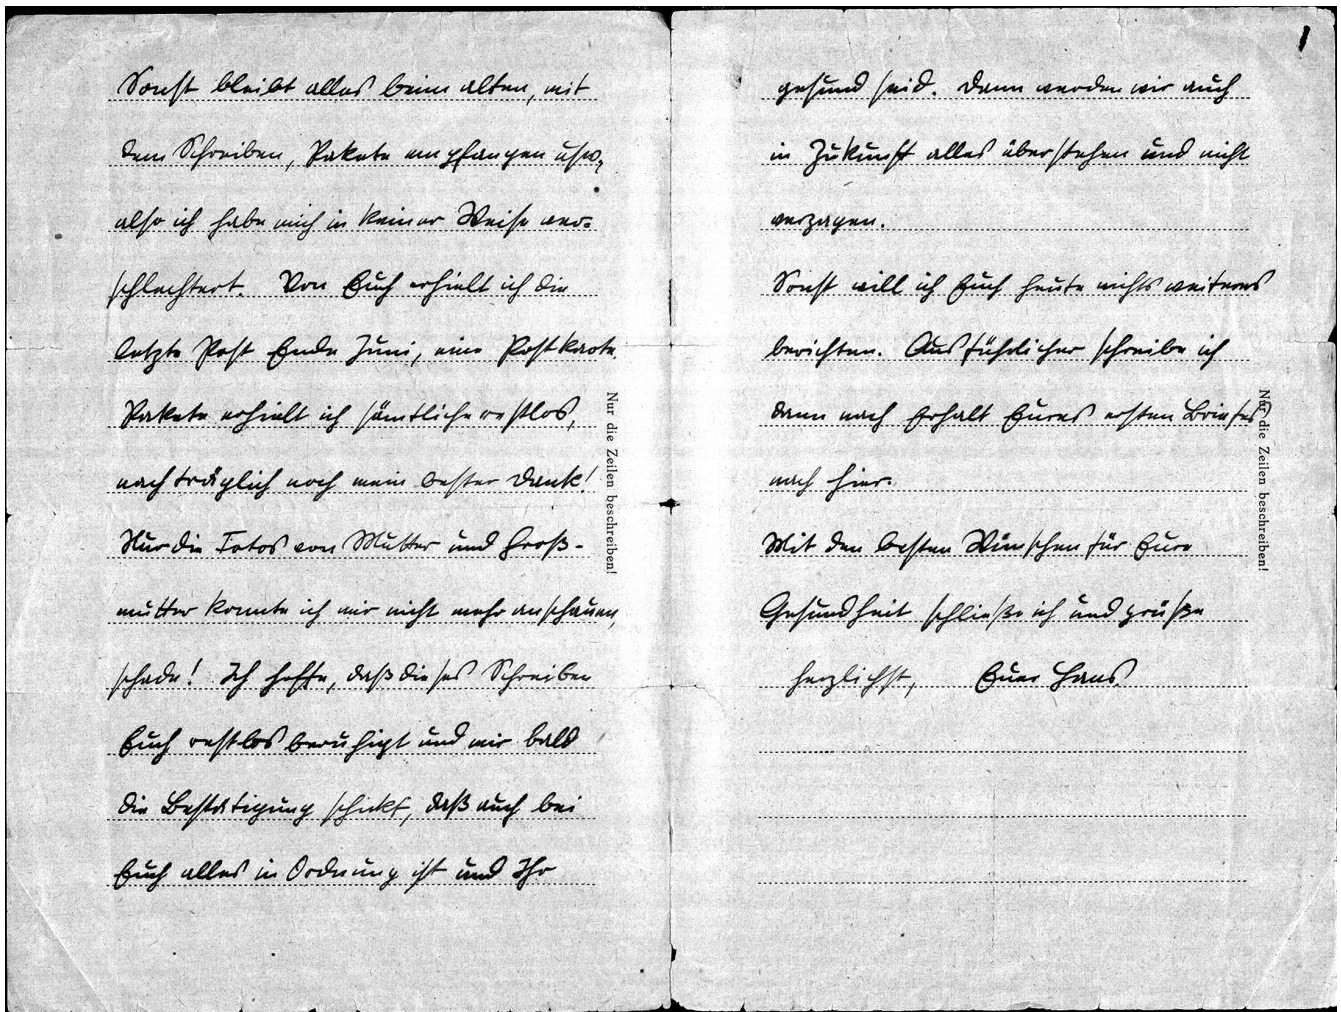 Sonst bleibt alles beim alten, mit
dem Schreiben, Pakete empfangen usw.,
also ich habe mich in keiner Weise ver=
schlechtert. Von Euch erhielt ich die
letzte Post Ende Juni, eine Postkarte.
Pakete erhielt ich sämtliche restlos,
nachträglich noch mein bester Dank!
Nur die Fotos von Mutter und Groß-
mutter konnte ich mir nicht mehr anschauen,
schade! Ich hoffe, daß dieses Schreiben
Euch restlos beruhigt und mir bald
die Bestätigung schickt, daß auch bei
Euch alles in Ordnung ist und Ihr
Nur die Zeilen beschreiben!
1
gesund seid. Dann werden wir auch
in Zukunft alles überstehen und nicht
verzagen.
Sonst will ich Euch heute nichts weiteres
berichten. Ausführlicher schreibe ich
dann nach Erhalt Eures ersten Briefes
nach hier.
Mit den besten Wünschen für Eure
Gesundheit schließe ich und grüße
herzlichst, Euer Hans
Nur die Zeilen beschreiben!